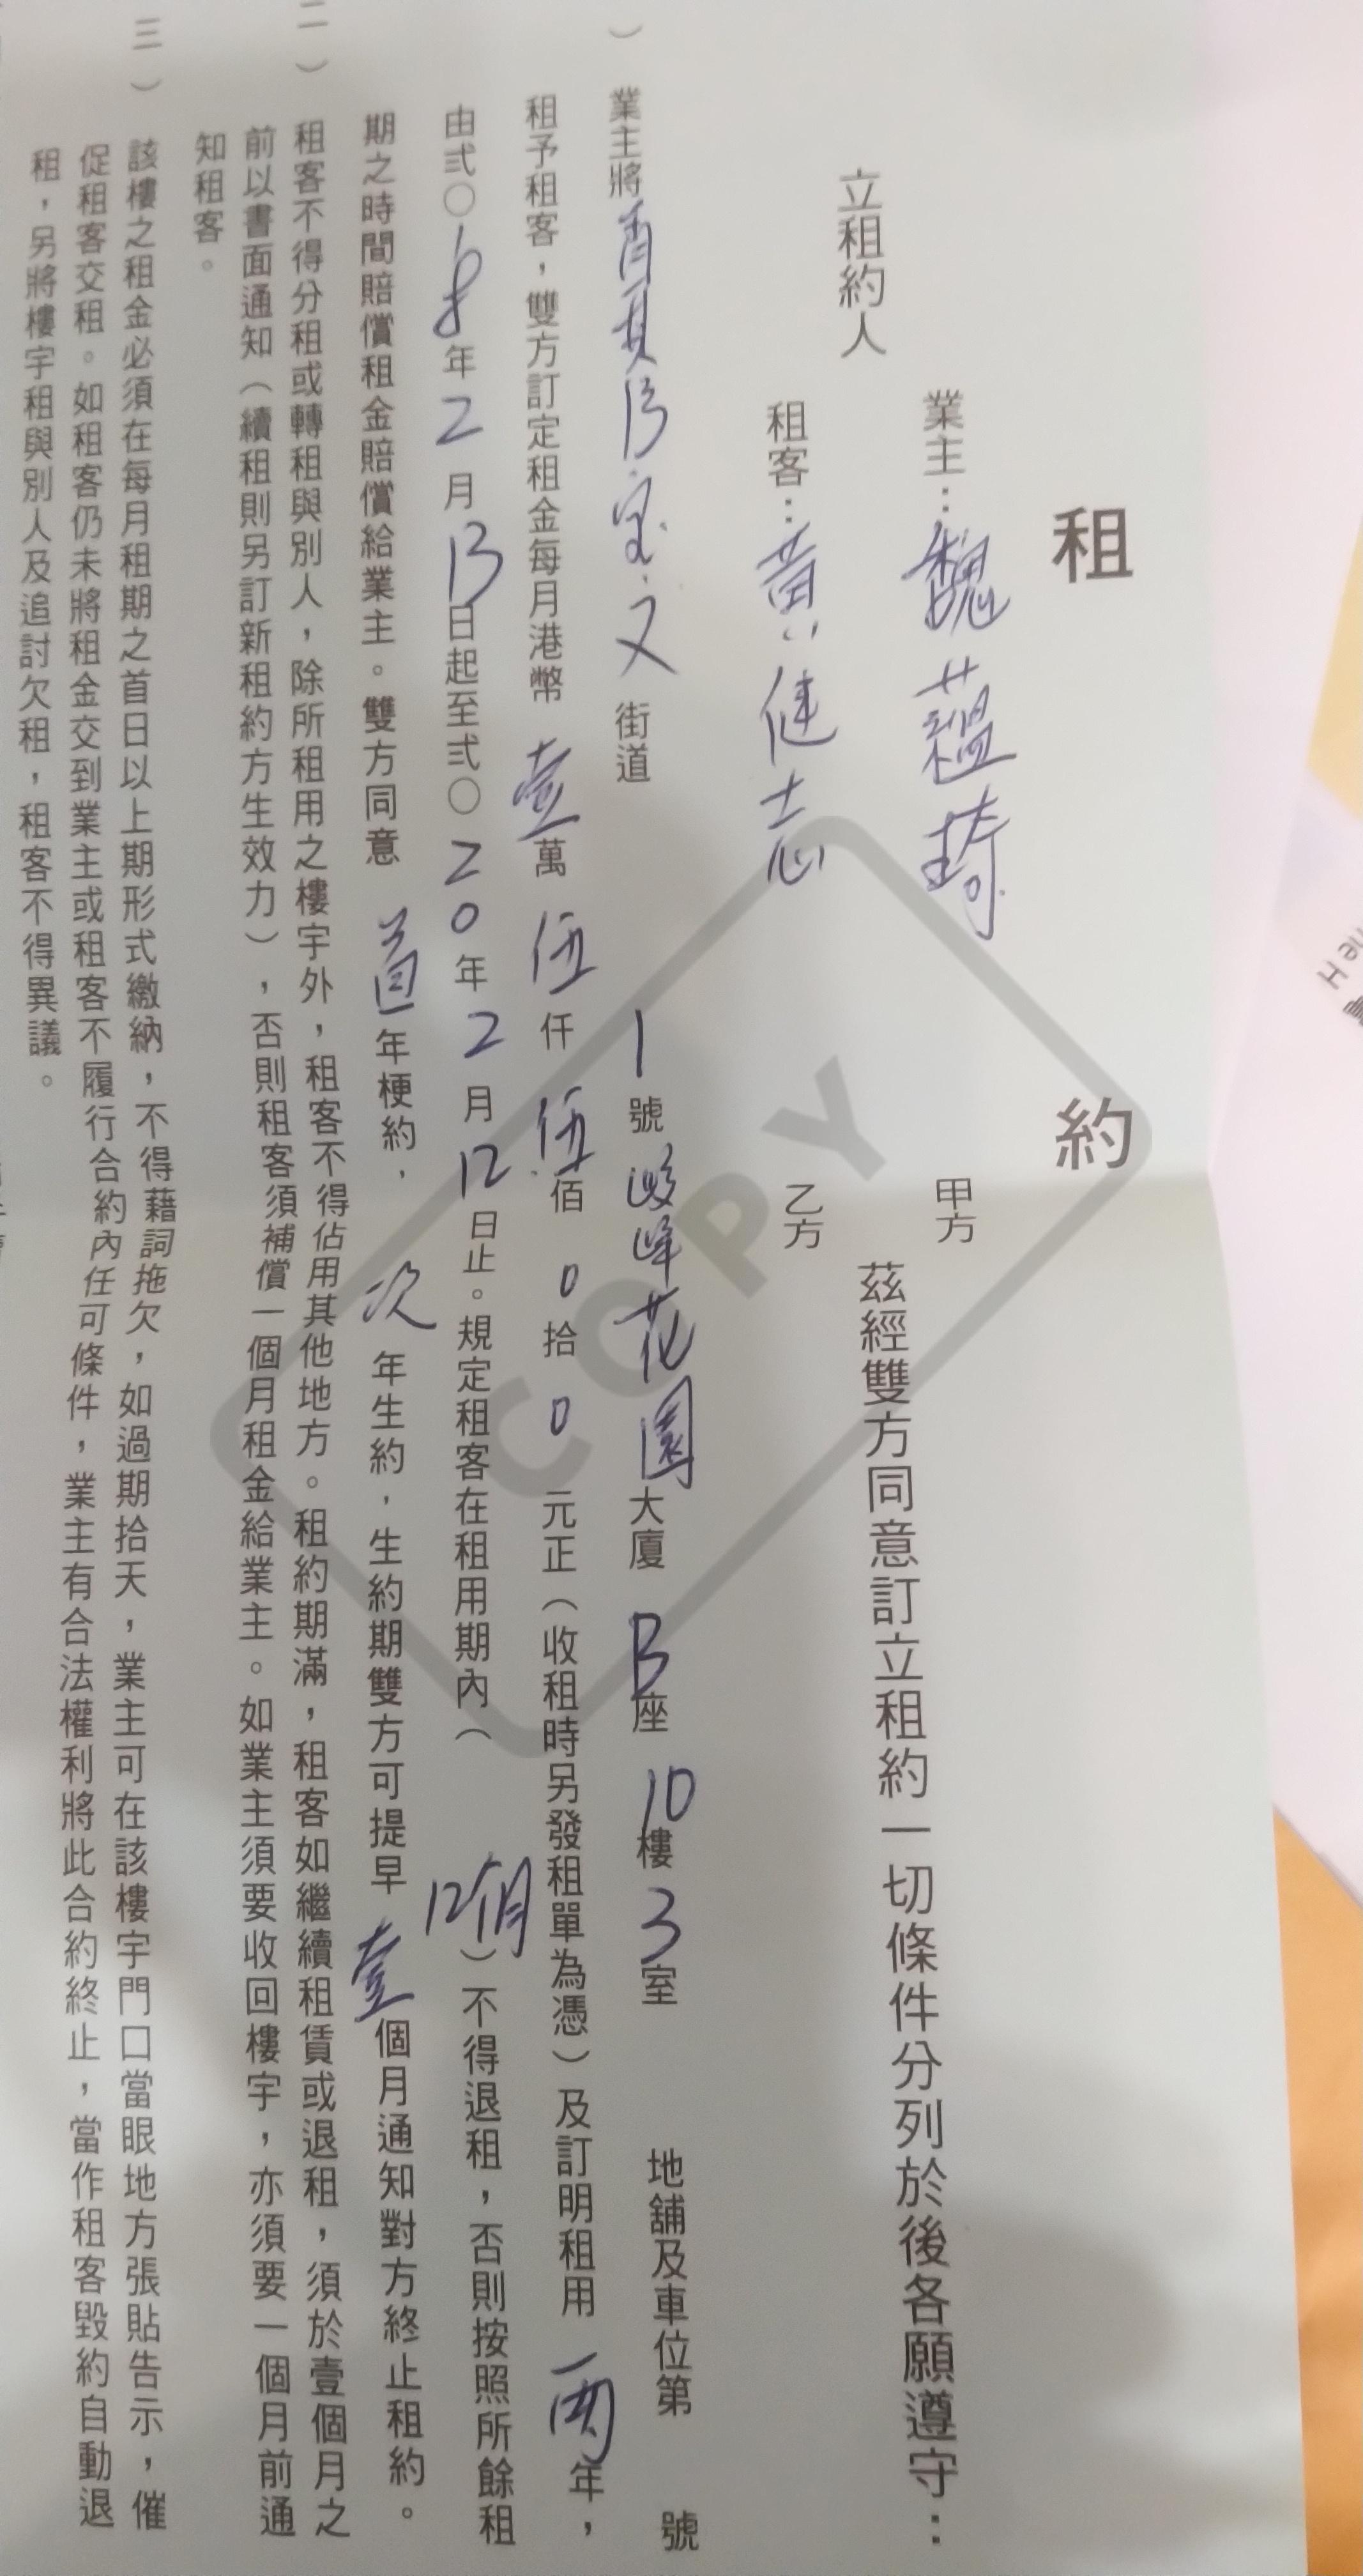 租約
業主：魏蘊琦 甲方
立租約人 茲經雙方同意訂立租約一切條件分列於後各願遵守：
租客：黃健志 乙方
）業主將 宝文街道 1號峻峰花園大廈 B座 10樓 3室 地舖及車位第 號
租予租客，雙方訂定租金每月港幣壹萬伍仟伍佰0拾0元正（收租時另發租單為憑）及訂明租用一兩年，
由弍○18年2月13日起至弍○20年2月12日止。規定租客在租用期內（12個月）不得退租，否則按照所餘租
期之時間賠償租金賠償給業主。雙方同意首年梗約，次年生約，生約期雙方可提早壹個月通知對方終止租約。
二）租客不得分租或轉租與別人，除所租用之樓宇外，租客不得佔用其他地方。租約期滿，租客如繼續租賃或退租，須於壹個月之
前以書面通知（續租則另訂新租約方生效力），否則租客須補償一個月租金給業主。如業主須要收回樓宇，亦須要一個月前通
知租客。
三）該樓之租金必須在每月租期之首日以上期形式繳納，不得藉詞拖欠，如過期拾天，業主可在該樓宇門口當眼地方張貼告示，催
促租客交租。如租客仍未將租金交到業主或租客不履行合約內任可條件，業主有合法權利將此合約終止，當作租客毀約自動退
租，另將樓宇租與別人及追討欠租，租客不得異議。
COPY